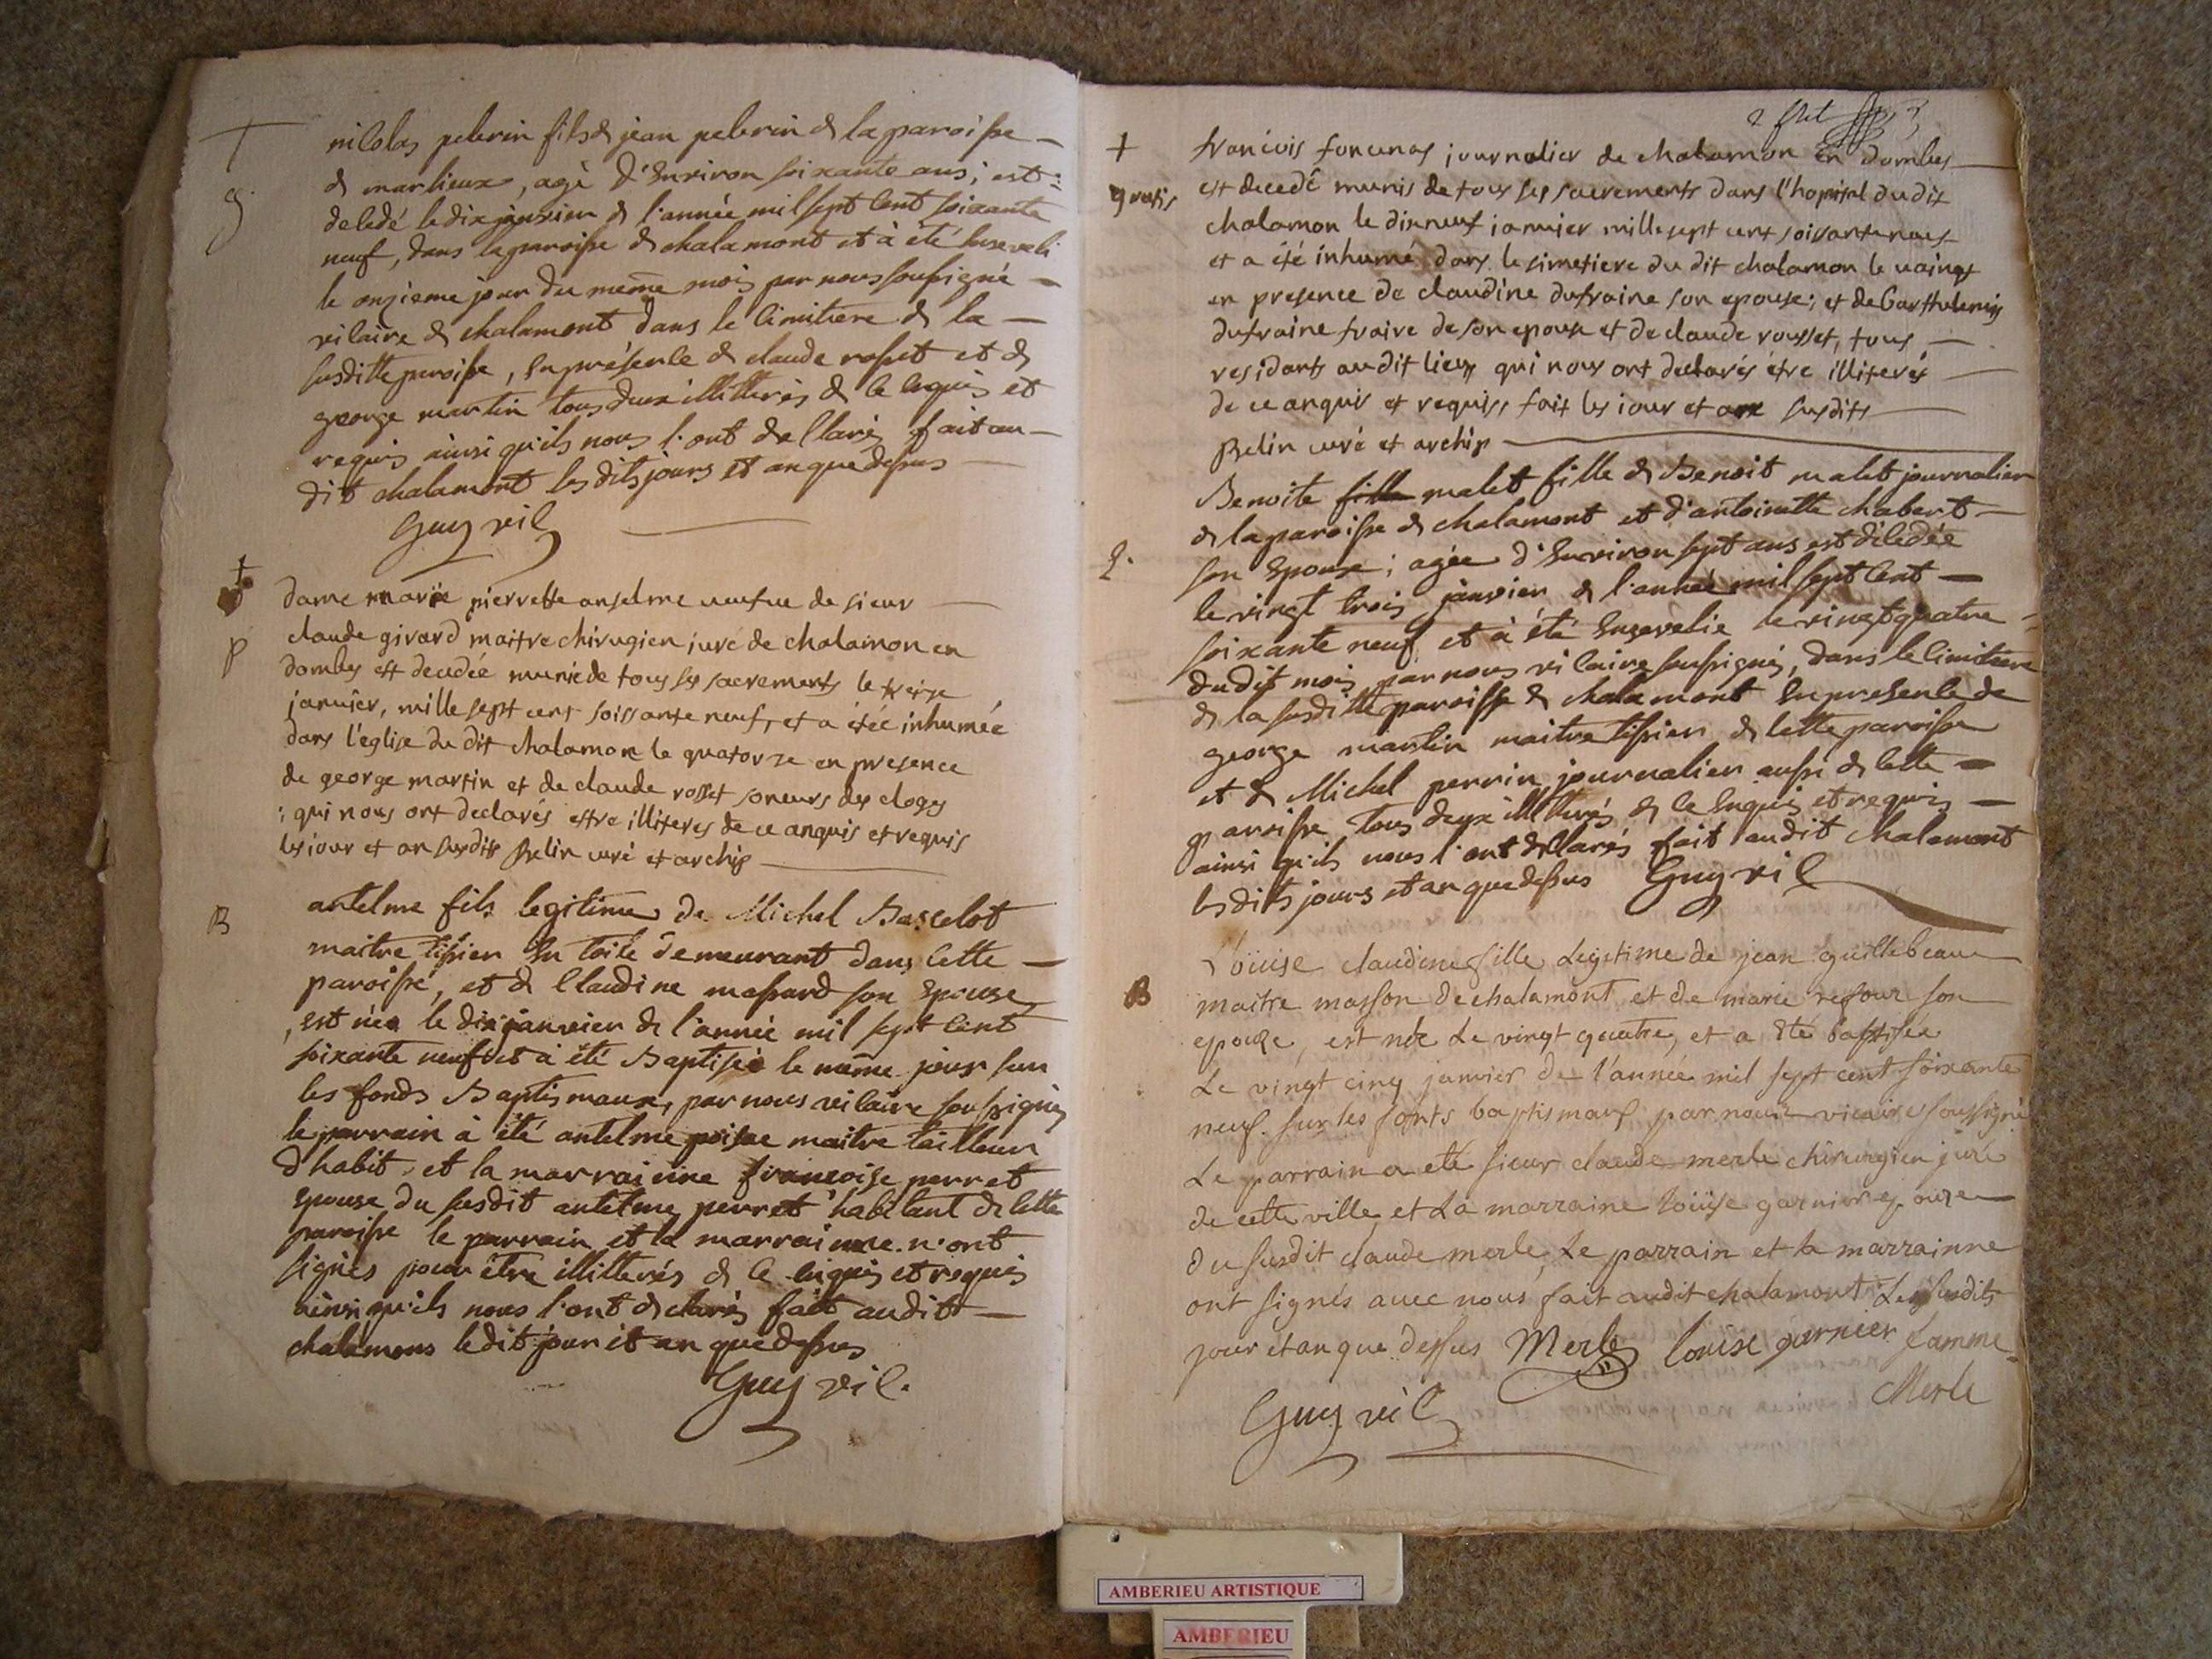 nicolas pelerin fils de jean pelerin de la paroisse
de marlieux, agé d'environ soixante ans; est
decedé le dix janvier de l'année mil sept cent soixante
neuf, dans la paroisse de chalamont et à été enseveli
le onzieme jour du meme mois par nous soussigné
vicaire de chalamont dans le cimitiere de la
susditte paroisse, en présence de claude rosset et de
george martin tous deux illitterés de ce enquis et
requis ainsi qu'ils nous l'ont declaré, fait au
dit chalamont les dits jours et an que dessus
Guy vic
g
dame marie pierrette anselme veufve de sieur
claude girard maitre chirugien juré de chalamon en
dombes est decedée munie de tous ses sacrements le treize
janvier, mille sept cent soissante neuf, et a étée inhumée
dans l'eglise du dit chalamon le quatorze en presence
de george martin et de claude rosset soneurs des cloges
; qui nous ont declarés estre illiteres de ce anquis et requis
les iour et an susdits Belin curé et archip
p
antelme fils legitime de Michel Bascelot
maitre tissier en toile demeurant dans cette
paroisse, et de Claudine massard son epouse
, est née le dix janvier de l'année mil sept cent
soixante neuf et à été Baptisée le même jour sur
les fonds Baptismaux, par nous vicaire soussigné,
le parrain à été antelme maitre tailleur
d'habit, et la marrainne françoise perret
epouse du susdit antelme perret habitant de cette
paroisse le parrain et la marrainne n'ont
signés pour être illitterés de ce enquis et requis
ainsi qu'ils nous l'ont declaré, fait audit
chalamons ledit jour et an que dessus
Guy vic.
B
francois forcenas journalier de chalamon en dombes
est decedé munis de tous ses sacrements dans l'hopital du dit
chalamon le dixneuf ianvier mille sept cent soissante neuf
et a été inhumé dans le simetiere du dit chalamon le vaingt
en presence de claudine dufraine son epouse; et de Barthelemis
dufraine fraire de son epouse et de claude rousset, tous
residants au dit lieux qui nous ont declarés étre illiterés
de ce anquis et requis, fait les iour et an susdits
Belin curé et archip
gratis
Benoite fille malet fille de Benoit malet journalier
de la paroisse de chalamont et d'antoinette chabert
son epouse; agée d'environ sept ans est décedée
le vingt trois janvier de l'année mil sept cent
soixante neuf et à été ensevelie le vingt quatre
dudit mois par nous vicaire soussigné, dans le cimitiere
de la susditte paroisse de chalamont en presence de
george martin maitre tissier de cette paroisse
et de Michel perrin journalier aussi de cette
paroisse tous deux illitterés de ce enquis et requis
ainsi qu'ils nous l'ont declarés fait audit chalamont
les dits jours et an que dessus Guy vic
Loüise claudine fille Legitime de jean guillebeau
maitre masson de chalamont et de marie son
epouze, est née Le vingt quatre, et a été baptisée
Le vingt cinq janvier de l'année mil sept cent soixante
neuf sur les fonts baptismaux par nous vicaire soussigné
Le parrain a eté sieur claude merle chirurgien juré
de cette ville et La marraine Loüise garnier epouze
du susdit claude merle, Le parrain et la marrainne
ont signés avec nous fait audit chalamont Les susdits
jour et an que dessus Merle louise garnier famme
Merle
Guy vic
B
AMBERIEU ARTISTIQUE
AMBERIEU